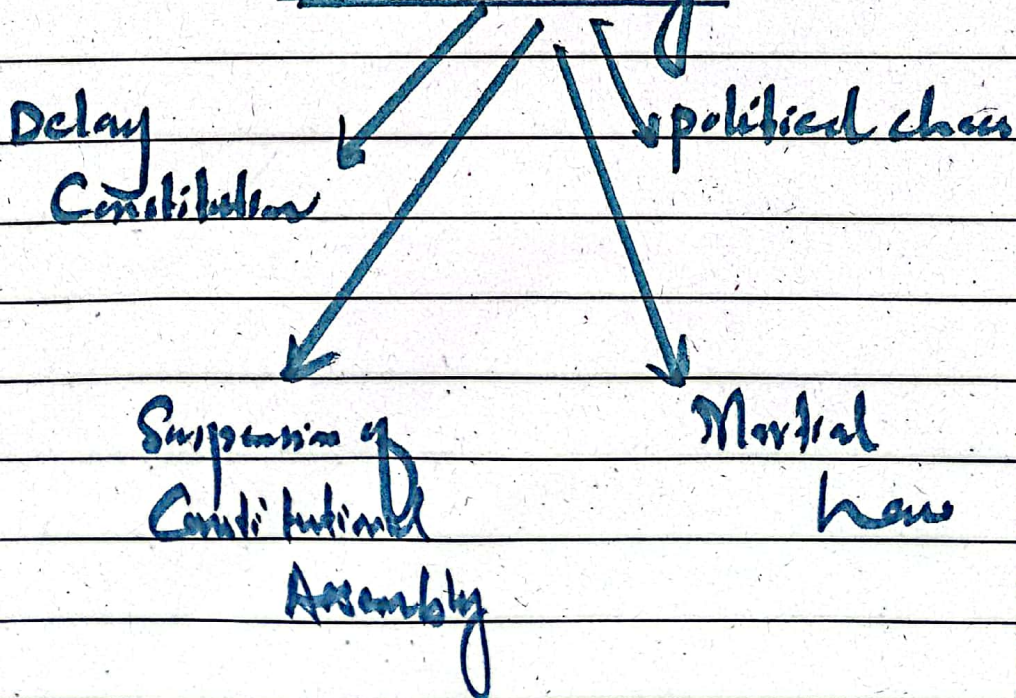 Delay
Constitution
political chaos
Suspension of
Constitutional
Assembly
Martial
Law